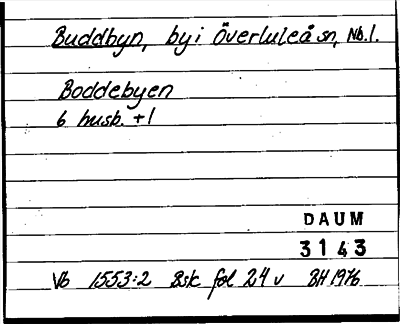 Buddbyn, by i Överluleå sn, Nb. l.
Boddebyen
6 husb. + 1
DAUM
3143
Vb 1553:2 Bsk fol 24 v BH 1976